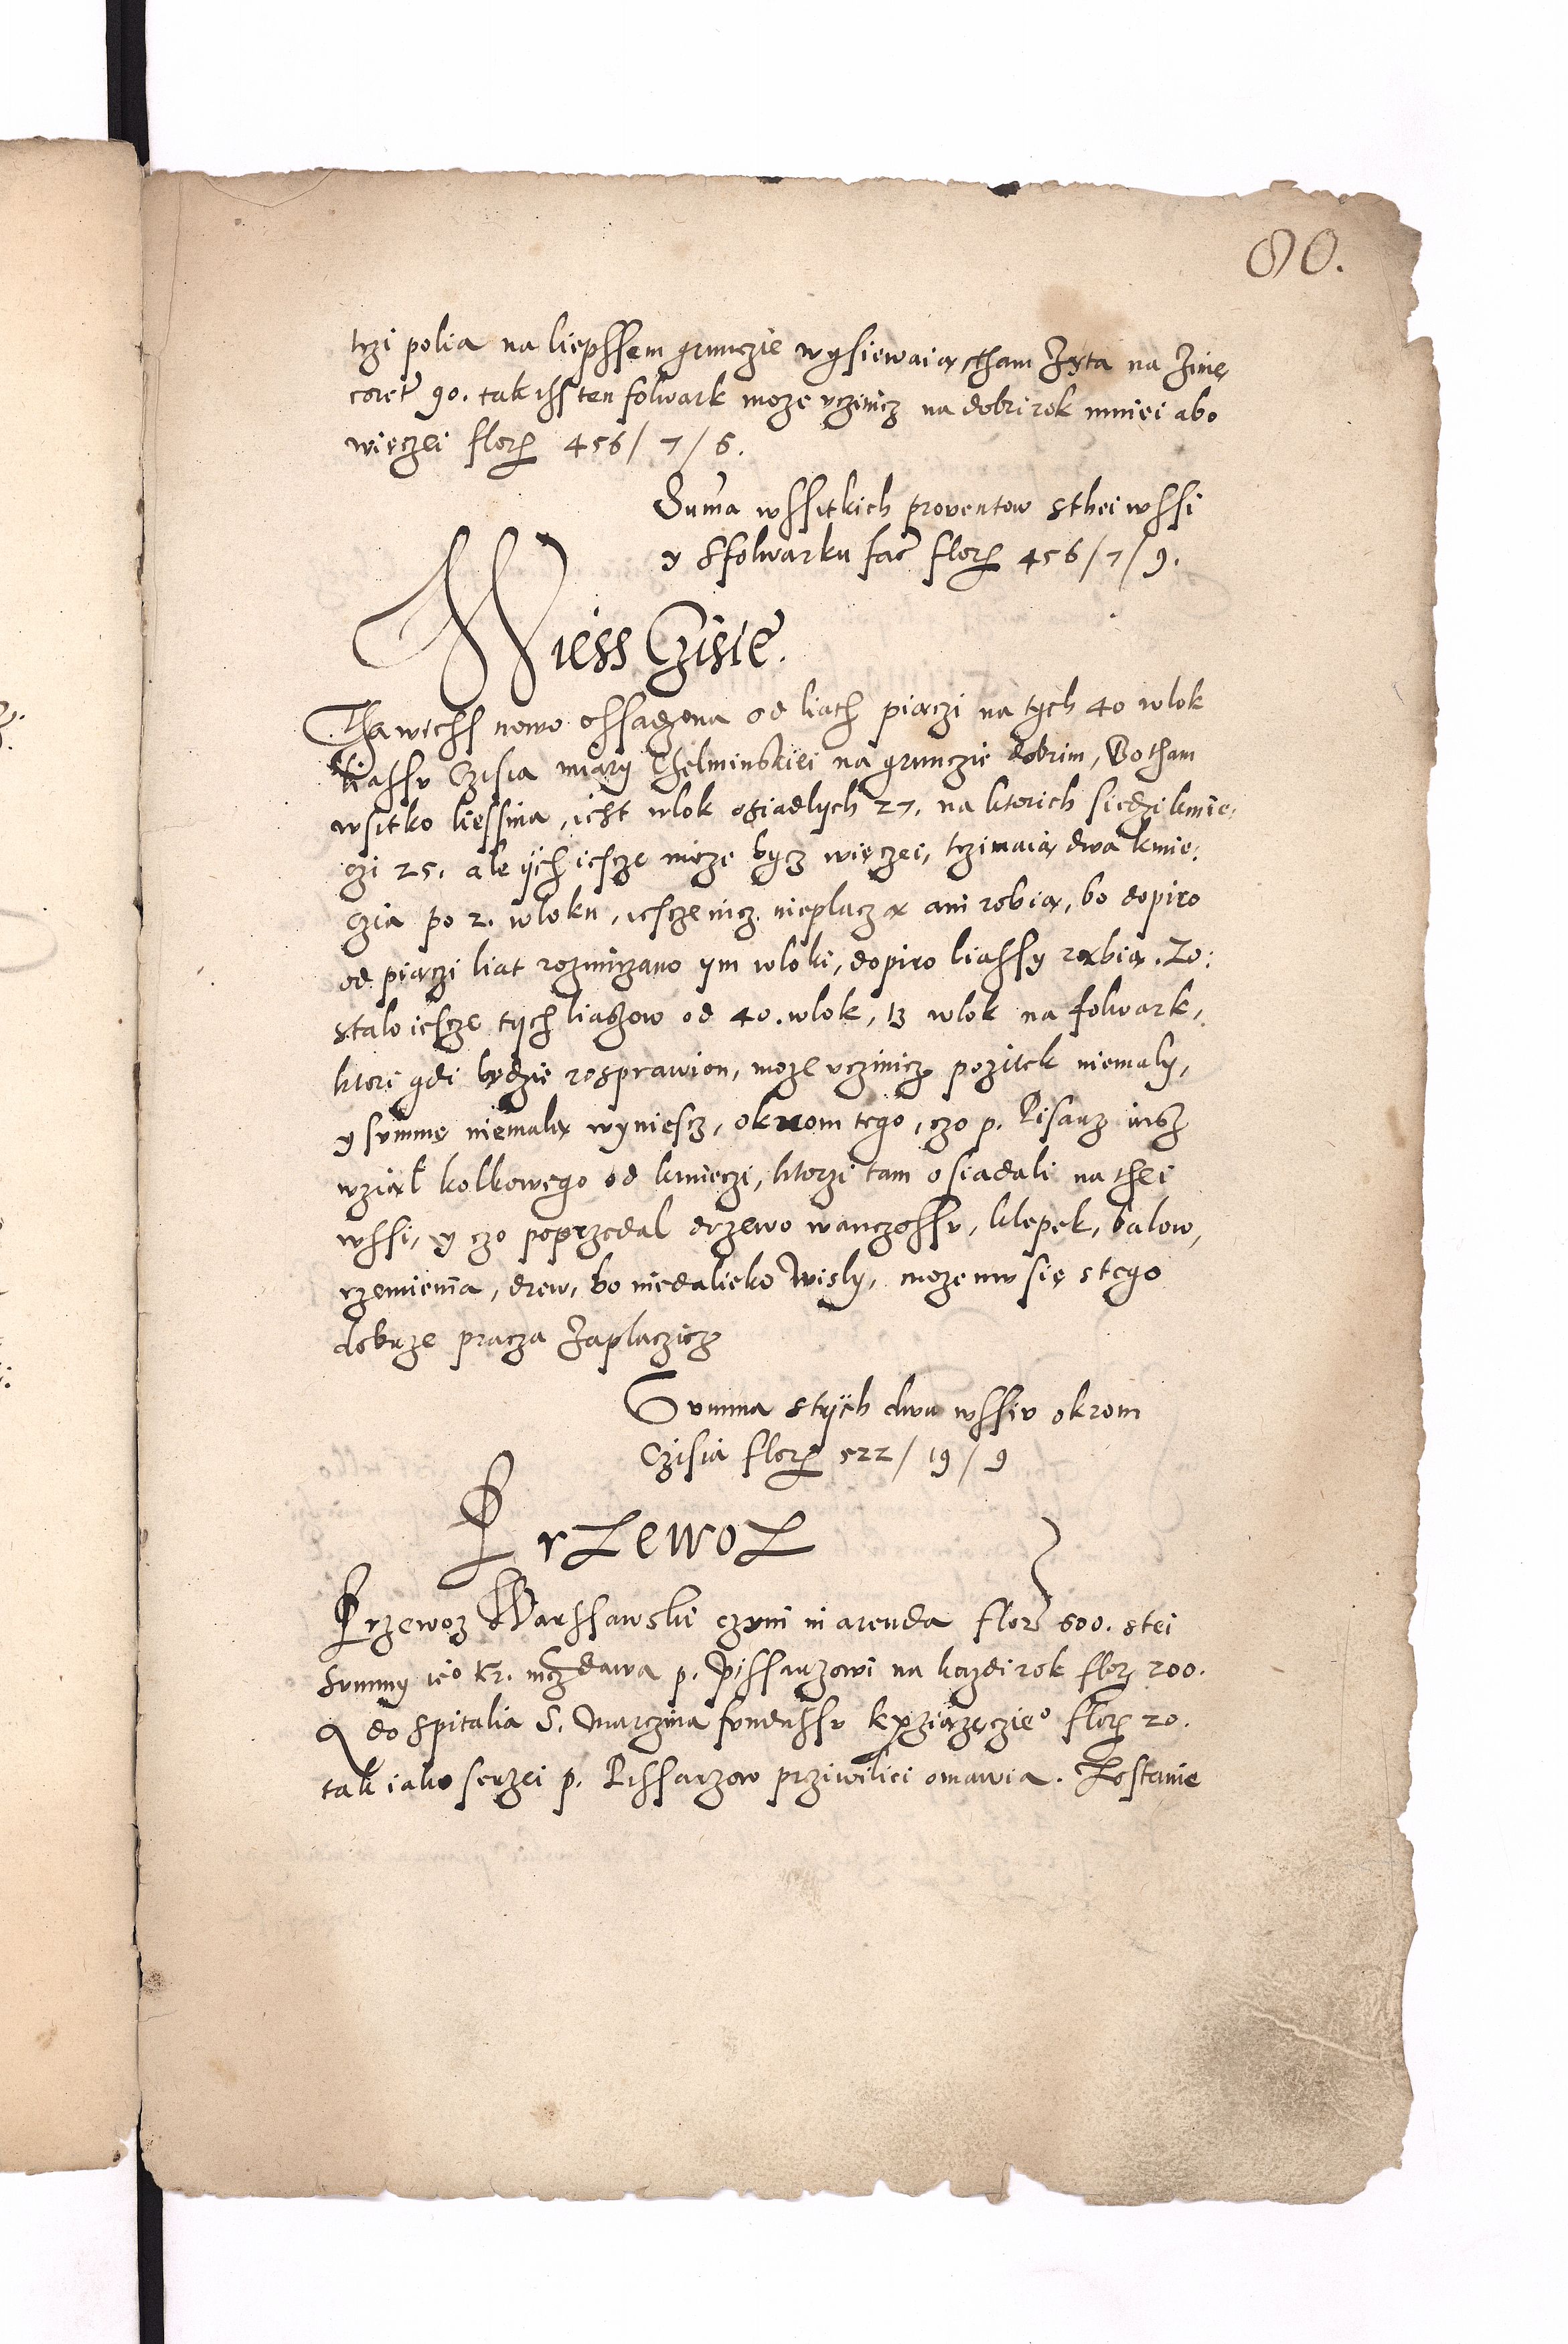 80.
trzi polia na liepssem grunczie wysiewaią tham żyta na zimę
coret 90. tak iss ten folwark moze uczinicz na dobri rok mniei abo
więczei floren 456/7/6.
Suma wssitkich proventow sthei wssi
y sfolwarku fac floren 456/7/9.
Wiess Czisie.
Tha wiess nowo ossadzona od liath piąćzi na tych 40 wlok
liassu Czisia miary Chelminskiei na grunczie dobrim, Bo tham
wsitko liessina, iest wlok osiadlych 27. na kterich siedzi kmie:
czi 25. ale ÿich iescze może bycz więczei, trzimaią dwa kmie:
czia po 2. wloku, iescze nicz nieplaczą ani robią, bo dopiro
od piąćzi liat rozmierzano ym wloki, dopiro liassy rąbią. Zo:
stalo iescze tych liaszow od 40. wlok, 13 wlok na folwark,
kteri gdi będzie rosprawion, moze uczinicz pozitek niemaly,
y summę niemalą wyniescz, okrom tego, czo p. Pisarz iusz
wziął kolkowego od kmieczi, ktorzi tam osiadali na thei
wssi, y czo poprzedal drzewo wanczossu, klepek, balow,
rzemienia, drew, bo niedalieko Wisly, moze mu się stego
dobrze pracza zaplaczicz
Summa stÿch dwu wssiu okrom
Czisia floren 522/19/9
Przewoz
Przewoz Warssawski czyni in arenda floren 600. stei
summy ieo kr. mcz dawa p. Pissarzowi na kazdi rok floren 200.
A do spitalia S. Marczina fundussu Kxziązęczieo floren 20.
tak iako serzei p. Pissarzow prziwiliei omawia. Zostanie